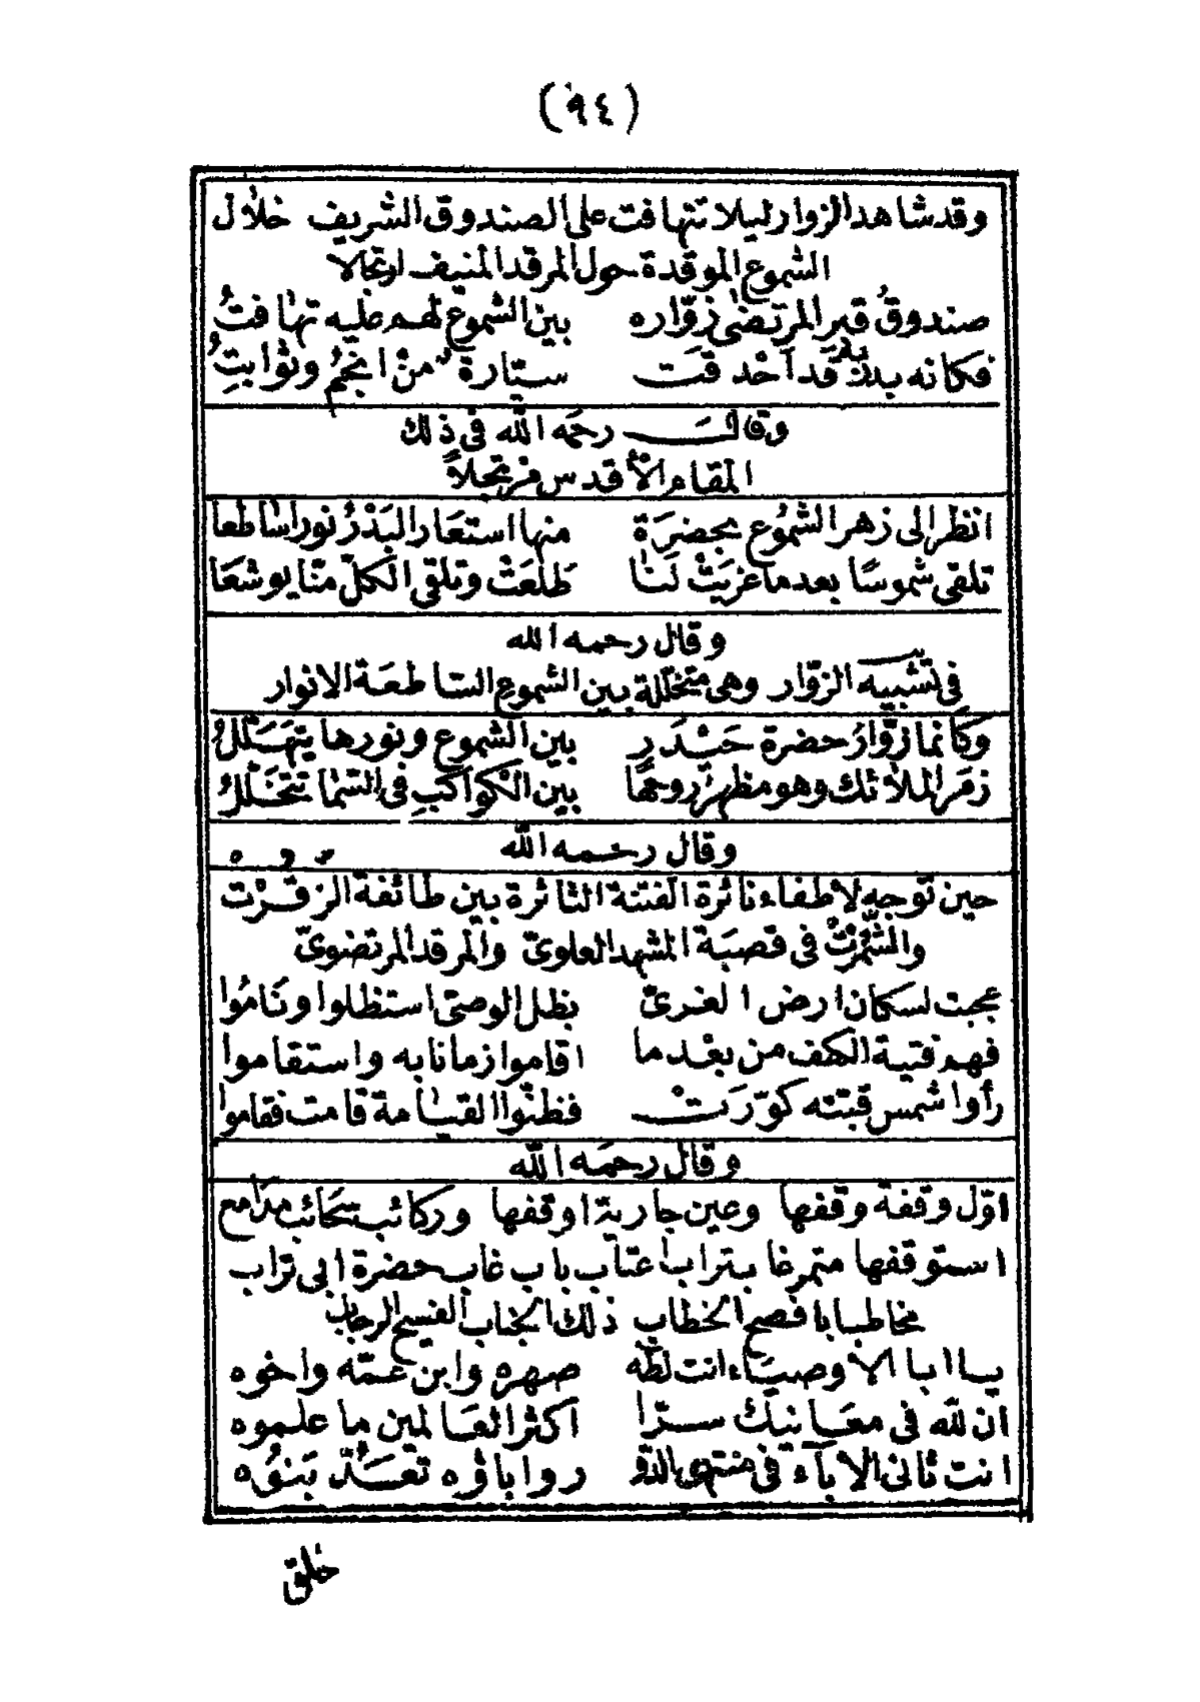 (٩٤)
وقد شاهد الزوار ليلا تتهافت على الصندوق الشريف خلال
الشموع الموقدة حول المرقد المنيف ارتجالا
صندوقُ قبر المرتضى زوّاره بين الشموع لهم عليه تهافتُ
فكانه بدر به قد أحدقت سيّارة من انجُمُ وثوابتِ
وقالــ رحمه الله فى ذلك
المقام الأقدس مرتجلاً
انظر الى زهر الشموع بحضرَة منها استعار البَدْرُ نورا ساطعا
تلقى شموسًا بعد ما غربَتْ لَنا طَلعَتْ وتلقى الكلّ منّا يوشعَا
وقال رحمه الله
فى تشبيه الزوّار وهى متخلّلة بين الشموع السّاطعَة الانوار
وكأنما زوّارُ حضرة حَيْدَرٍ بين الشموع ونورها يتهَلّلُ
زمَر الملأئك وهو مظهر روحها بين الكواكبِ فى السّما تتخَلّلُ
وقال رحمه الله
حين توجه لاطفاء نائرة الفتنة الثائرة بين طائفة الزقُرْت
والشّمُرْتْ فى قصبَة المشهد العلوىّ والمرقد المرتضوىّ
عجبت لسكان ارض الغرىّ بظل الوصىّ استظلوا ونَامُوا
فهم فتية الكهف من بعْد ما اقاموا زمانا به واستقاموا
رأوا شمس قبّته كوّرَتْ فظنّوا القيامة قامت فقاموا
وقال رحمَه الله
اوّل وقفة وقفها وعين جارية اوقفها وركائب سَحَائب مدَامع
استوقفها متمرغا بتراب عتاب باب غاب حضرة ابى تراب
مخاطبا بافصح الخطاب ذلك الجناب الفسيح الرحاب
يا ابا الاوصيَاء انت لطه صهره وابن عمّه واخوه
ان لله فى معَانيك سرّا اكثر العَالمين ما علموه
انت ثانى الابآء فى منتهى الدّو ر واباؤه تعَدّ بَنوُه
خلق